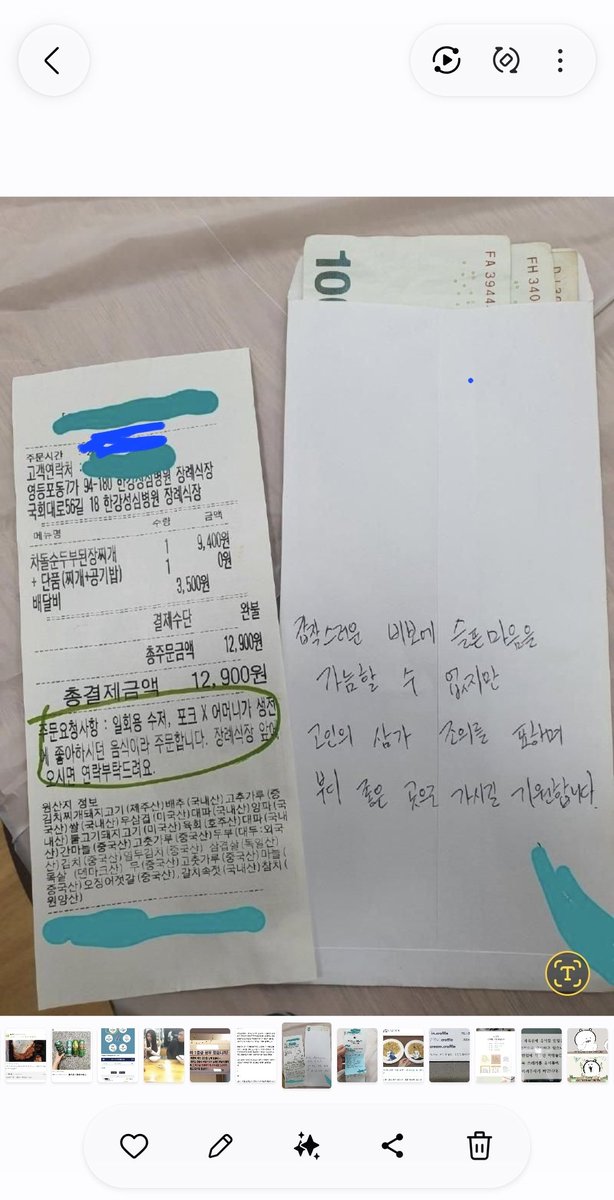 주문시간
고객연락처 :
영등포동7가 94-180 한강성심병원 장례식장
국회대로56길 18 한강성심병원 장례식장
메뉴명 수량 금액
차돌순두부된장찌개 1 9,400원
+ 단품(찌개+공기밥) 1 0원
배달비 3,500원
결제수단 완불
총주문금액 12,900원
총결제금액 12,900원
주문요청사항 : 일회용 수저, 포크 X 어머니가 생전
에 좋아하시던 음식이라 주문합니다. 장례식장 앞에
오시면 연락부탁드려요.
원산지 정보
김치찌개돼지고기(제주산)배추(국내산)고추가루(중
국산)쌀(국내산)우삼겹(미국산)대파(국내산)양파(국
내산)불고기돼지고기(미국산)육회(호주산)대파(국내
산)간마늘(중국산)고춧가루(중국산)두부(대두:외국
산)김치(중국산)
목살(덴마크산) 무(중국산)고춧가루(중국산)마늘(
중국산)오징어젓갈(중국산),갈치속젓(국내산)참치(
원양산)
100
FA 3944
FH 340
갑작스러운 비보에 슬픈마음을
가늠할 수 없지만
고인의 삼가 조의를 표하며
부디 좋은 곳으로 가시길 기원합니다.
T